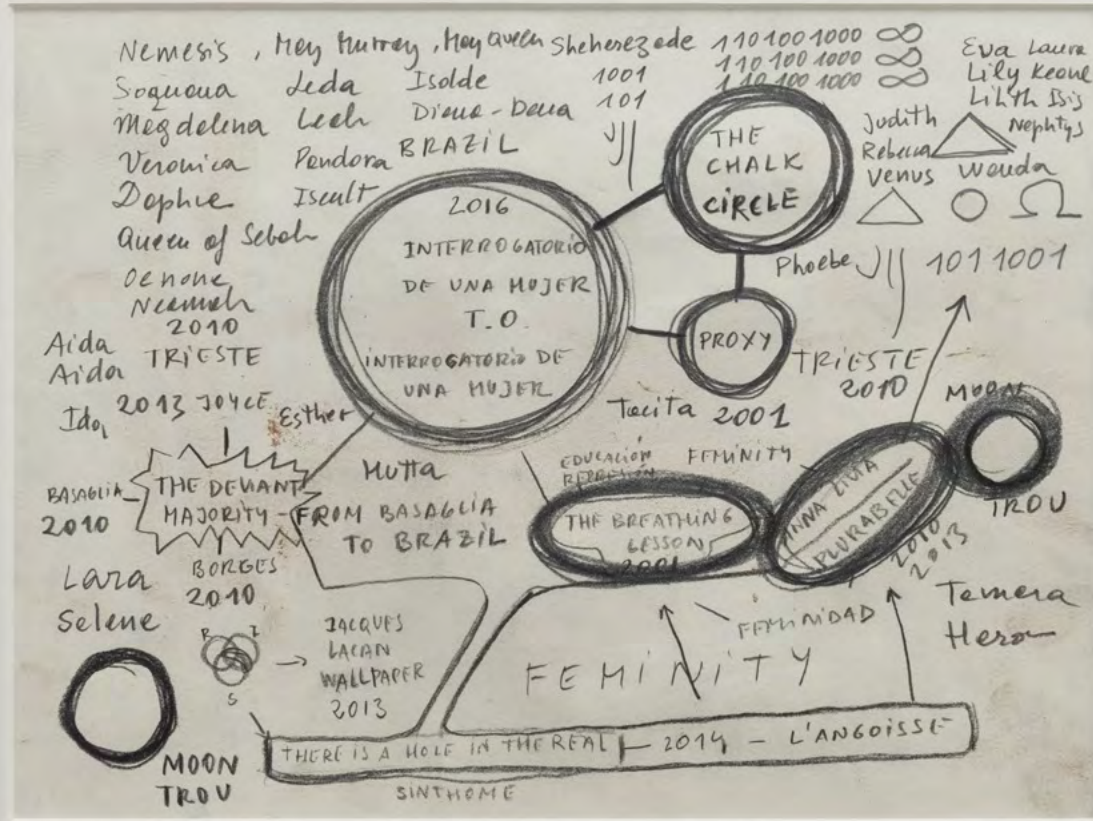 Nemesis, Mey Murrey, Mey Queen Sheherezade 110100 1000 ∞
110 100 1000 ∞
110 100 1000 ∞
Eva Laura
Lily Keone
Lilith Isis
Nephtys
Soquoua Leda Isolde 1001
Megdelena Leeh Diana-Dana 101
Veronica Pendora BRAZIL
Dephne Iseult
Queen of Sebah
Oenone
Neemeh
2010
TRIESTE
Judith
Rebecca
Venus Wanda
Phoebe 1011001
THE
CHALK
CIRCLE
2016
INTERROGATORIO
DE UNA MUJER
T.O.
INTERROGATORIO DE
UNA MUJER
PROXY
TRIESTE
2010
Aida
Aida
Ida
2013 JOYCE
Esther
Tacita 2001
MOON
TROU
BASAGLIA
2010
THE DEVIANT
MAJORITY - FROM BASAGLIA
TO BRAZIL
Mutta
EDUCACIÓN
REPRESIÓN
FEMINITY
THE BREATHING
LESSON
2001
ANNA LIVIA
PLURABELLE
2010
2013
BORGES
2010
Lara
Selene
R I
S
JACQUES
LACAN
WALLPAPER
2013
FEMINIDAD
FEMINITY
Temera
Hera
MOON
TROU
THERE IS A HOLE IN THE REAL - 2014 - L'ANGOISSE
SINTHOME